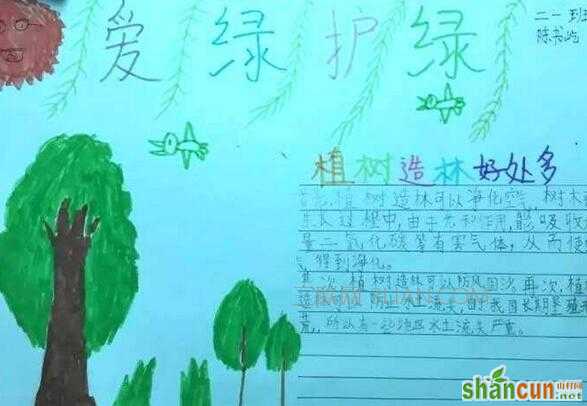 爱绿护绿
二一班
陈书屹
植树造林好处多
植树造林可以净化空气，树木
生长过程中，由于光和作用，能吸收
量二氧化碳等有害气体，从而使
得到净化。
其次，植树造林可以防风固沙，再次，植
造
水土流失，由于我国长期垦殖
荒，所以有一些地区水土流失严重。
shancun
山村网
.net